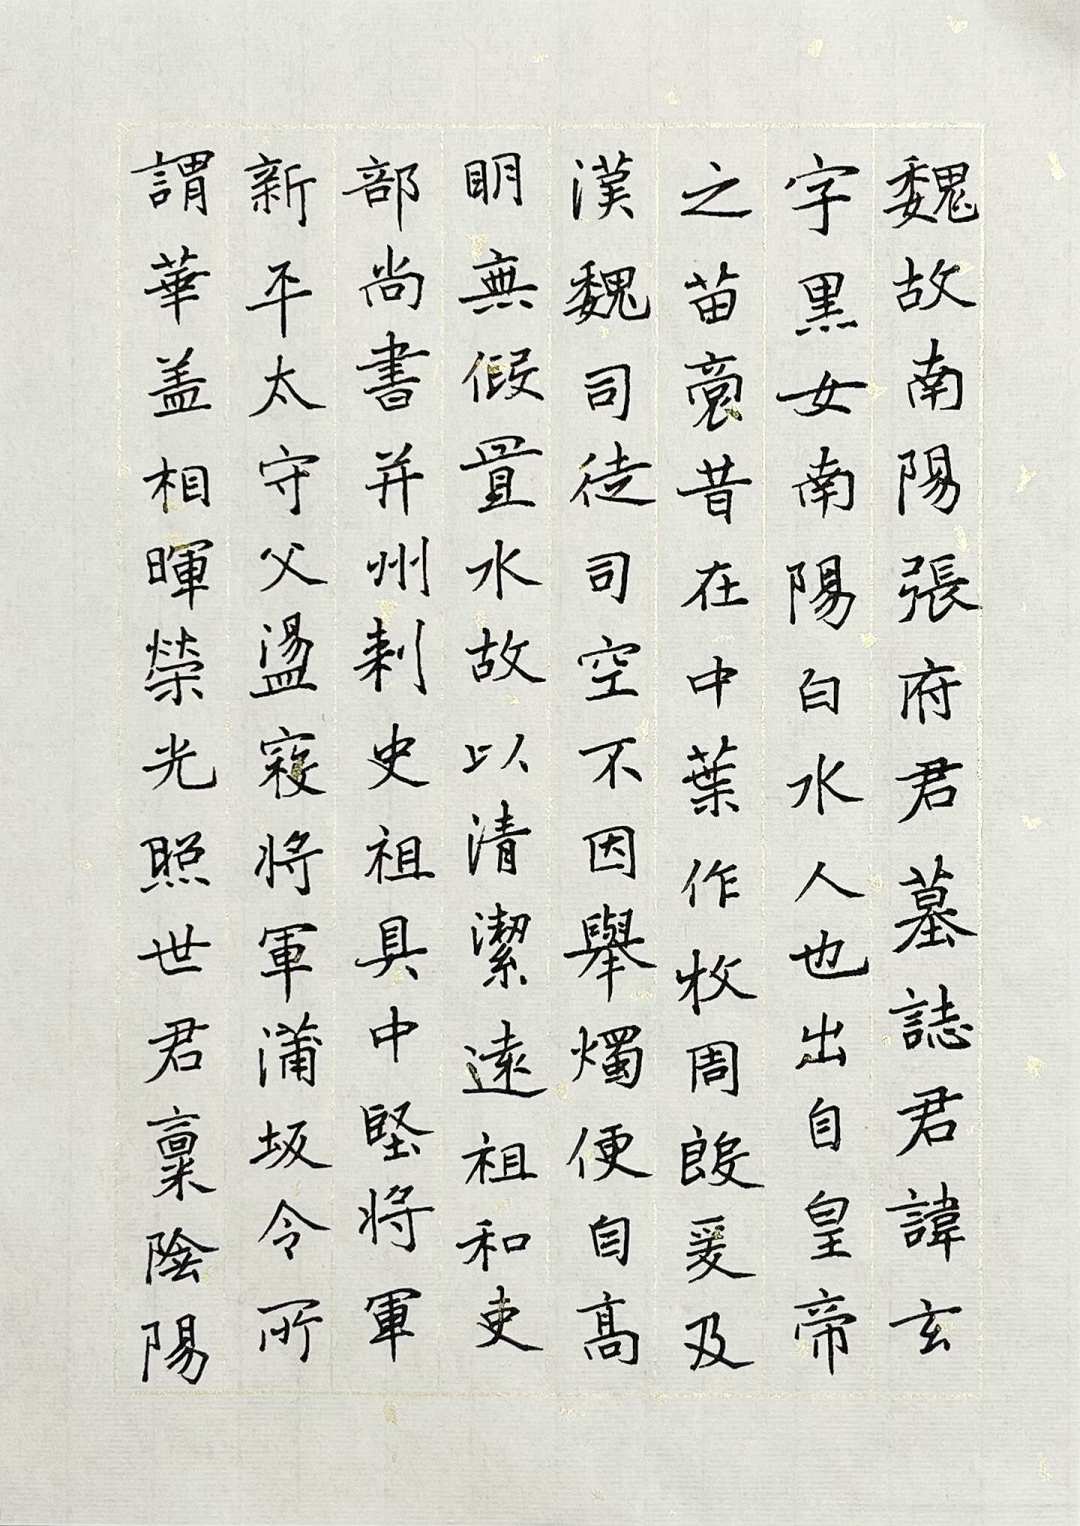 魏故南陽張府君墓誌君諱玄
字黑女南陽白水人也出自皇帝
之苗裔昔在中葉作牧周殷爰及
漢魏司徒司空不因舉燭便自高
明無假置水故以清潔遠祖和吏
部尚書并州刺史祖具中堅將軍
新平太守父盪寇將軍蒲坂令所
謂華蓋相暉榮光照世君稟陰陽